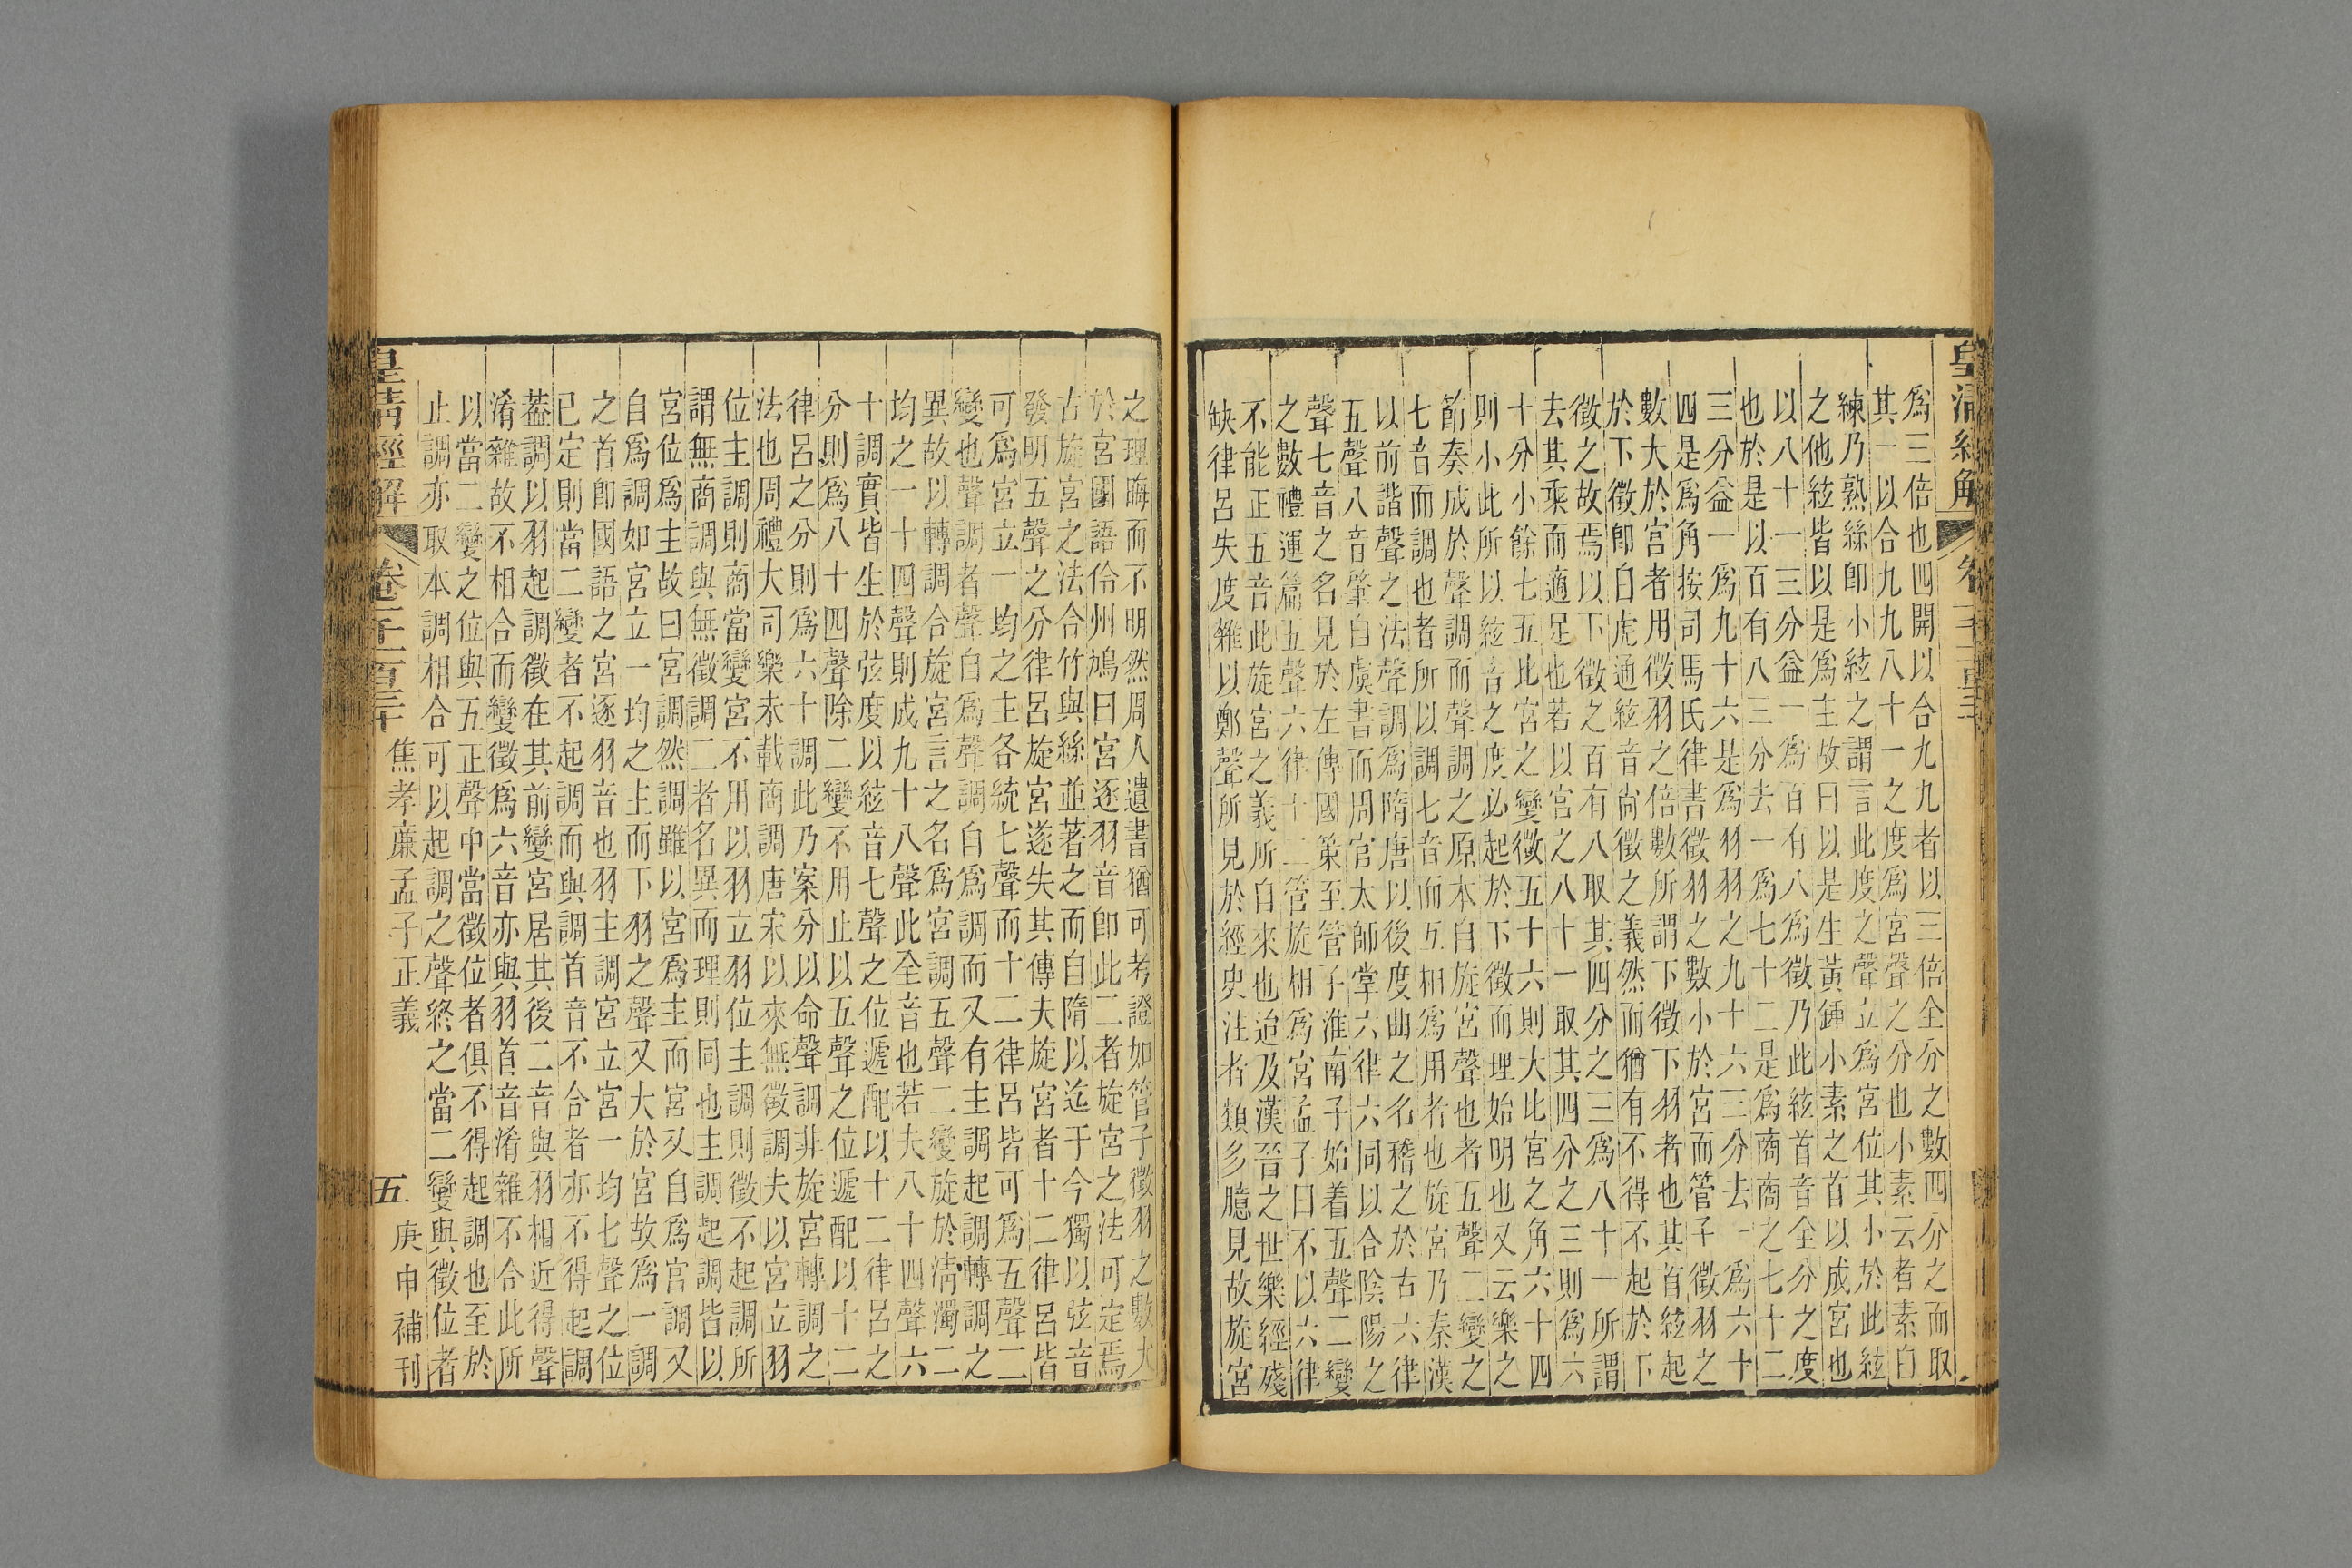 皇清經解
爲三倍也四開以合九九者以三倍全分之數四分之而取
其一以合九九八十一之度爲宮聲之分也小素云者素白
練乃熟絲卽小絃之謂言此度之聲立爲宮位其小於此絃
之他絃皆以是爲主故曰以是生黃鍾小素之首以成宮也
以八十一三分益一爲百有八爲徵乃此絃首音全分之度
也於是以百有八三分去一爲七十二是爲商商之七十二
三分益一爲九十六是爲羽羽之九十六三分去一爲六十
四是爲角按司馬氏律書徵羽之數小於宮而管子徵羽之
數大於宮者用徵羽之倍數所謂下徵下羽者也其首絃起
於下徵卽白虎通絃音尚徵之義然而猶有不得不起於下
徵之故焉以下徵之百有八取其四分之三爲八十一所謂
去其乘而適足也若以宮之八十一取其四分之三則爲六
十分小餘七五比宮之變徵五十六則大比宮之角六十四
則小此所以絃音之度必起於下徵而理始明也又云樂之
節奏成於聲調而聲調之原本自旋宮聲也者五聲二變之
七音而調也者所以調七音而互相爲用者也旋宮乃秦漢
以前諧聲之法聲調爲隋唐以後度曲之名稽之於古六律
五聲八音肇自虞書而周官太師掌六律六同以合陰陽之
聲七音之名見於左傳國策至管子淮南子始着五聲二變
之數禮運篇五聲六律十二管旋相爲宮孟子曰不以六律
不能正五音此旋宮之義所自來也迨及漢晉之世樂經殘
缺律呂失度雜以鄭聲所見於經史注者類多臆見故旋宮
之理晦而不明然周人遺書猶可考證如管子徵羽之數大
於宮國語伶州鳩曰宮逐羽音卽此二者旋宮之法可定焉
古旋宮之法合竹與絲並著之而自隋以迄于今獨以弦音
發明五聲之分律呂旋宮遂失其傳夫旋宮者十二律呂皆
可爲宮立一均之主各統七聲而十二律呂皆可爲五聲二
變也聲調者聲自爲聲調自爲調而又有主調起調轉調之
異故以轉調合旋宮言之名爲宮調五聲二變旋於清濁二
均之一十四聲則成九十八聲此全音也若夫八十四聲六
十調實皆生於弦度以絃音七聲之位遞配以十二律呂之
分則爲八十四聲除二變不用止以五聲之位遞配以十二
律呂之分則爲六十調此乃案分以命聲調非旋宮轉調之
法也周禮大司樂未載商調唐宋以來無徵調夫以宮立羽
位主調則商當變宮不用以羽立羽位主調則徵不起調所
謂無商調與無徵調二者名異而理則同也主調起調皆以
宮位爲主故曰宮調然調雖以宮爲主而宮又自爲宮調又
自爲調如宮立一均之主而下羽之聲又大於宮故爲一調
之首卽國語之宮逐羽音也羽主調宮立宮一均七聲之位
已定則當二變者不起調而與調首音不合者亦不得起調
蓋調以羽起調徵在其前變宮居其後二音與羽相近得聲
淆雜故不相合而變徵爲六音亦與羽首音淆雜不合此所
以當二變之位與五正聲中當徵位者俱不得起調也至於
止調亦取本調相合可以起調之聲終之當二變與徵位者
皇清經解 卷一千一百三十 焦孝廉孟子正義 五 庚申補刊